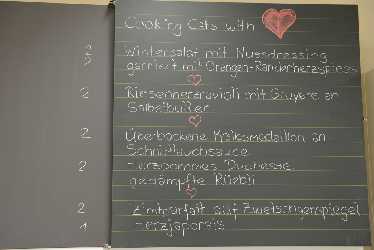 Cooking Cats with
2
2
Wintersalat mit Nussdressing
garniert mit Orangen-Randenherzspiess
2
Riesenherzravioli mit Gruyère an
Salbeibutter
2
Überbackene Kalbsmedaillon an
Schnittlauchsauce
2
Herzpommes Duchesse
gedämpfte Rüebli
2
Zimtparfait auf Zwetschgenspiegel
1
Herzjaponais